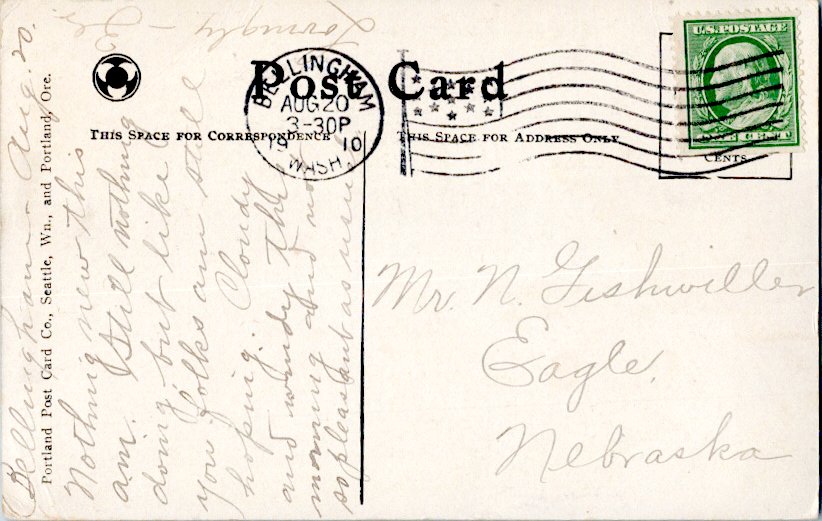 Post Card
THIS SPACE FOR CORRESPONDENCE
THIS SPACE FOR ADDRESS ONLY
BELLINGHAM
AUG 20
3-30P
1910
WASH.
U.S. POSTAGE
ONE CENT
CENTS
Portland Post Card Co., Seattle, Wn., and Portland, Ore.
Bellingham - Aug. 20.
Nothing new this
am. Still nothing
doing but like
you folks are still
hoping. Cloudy
and windy this
morning and not
so pleasant as usual
Lovingly -
Mr. N. Fishwiller
Eagle,
Nebraska